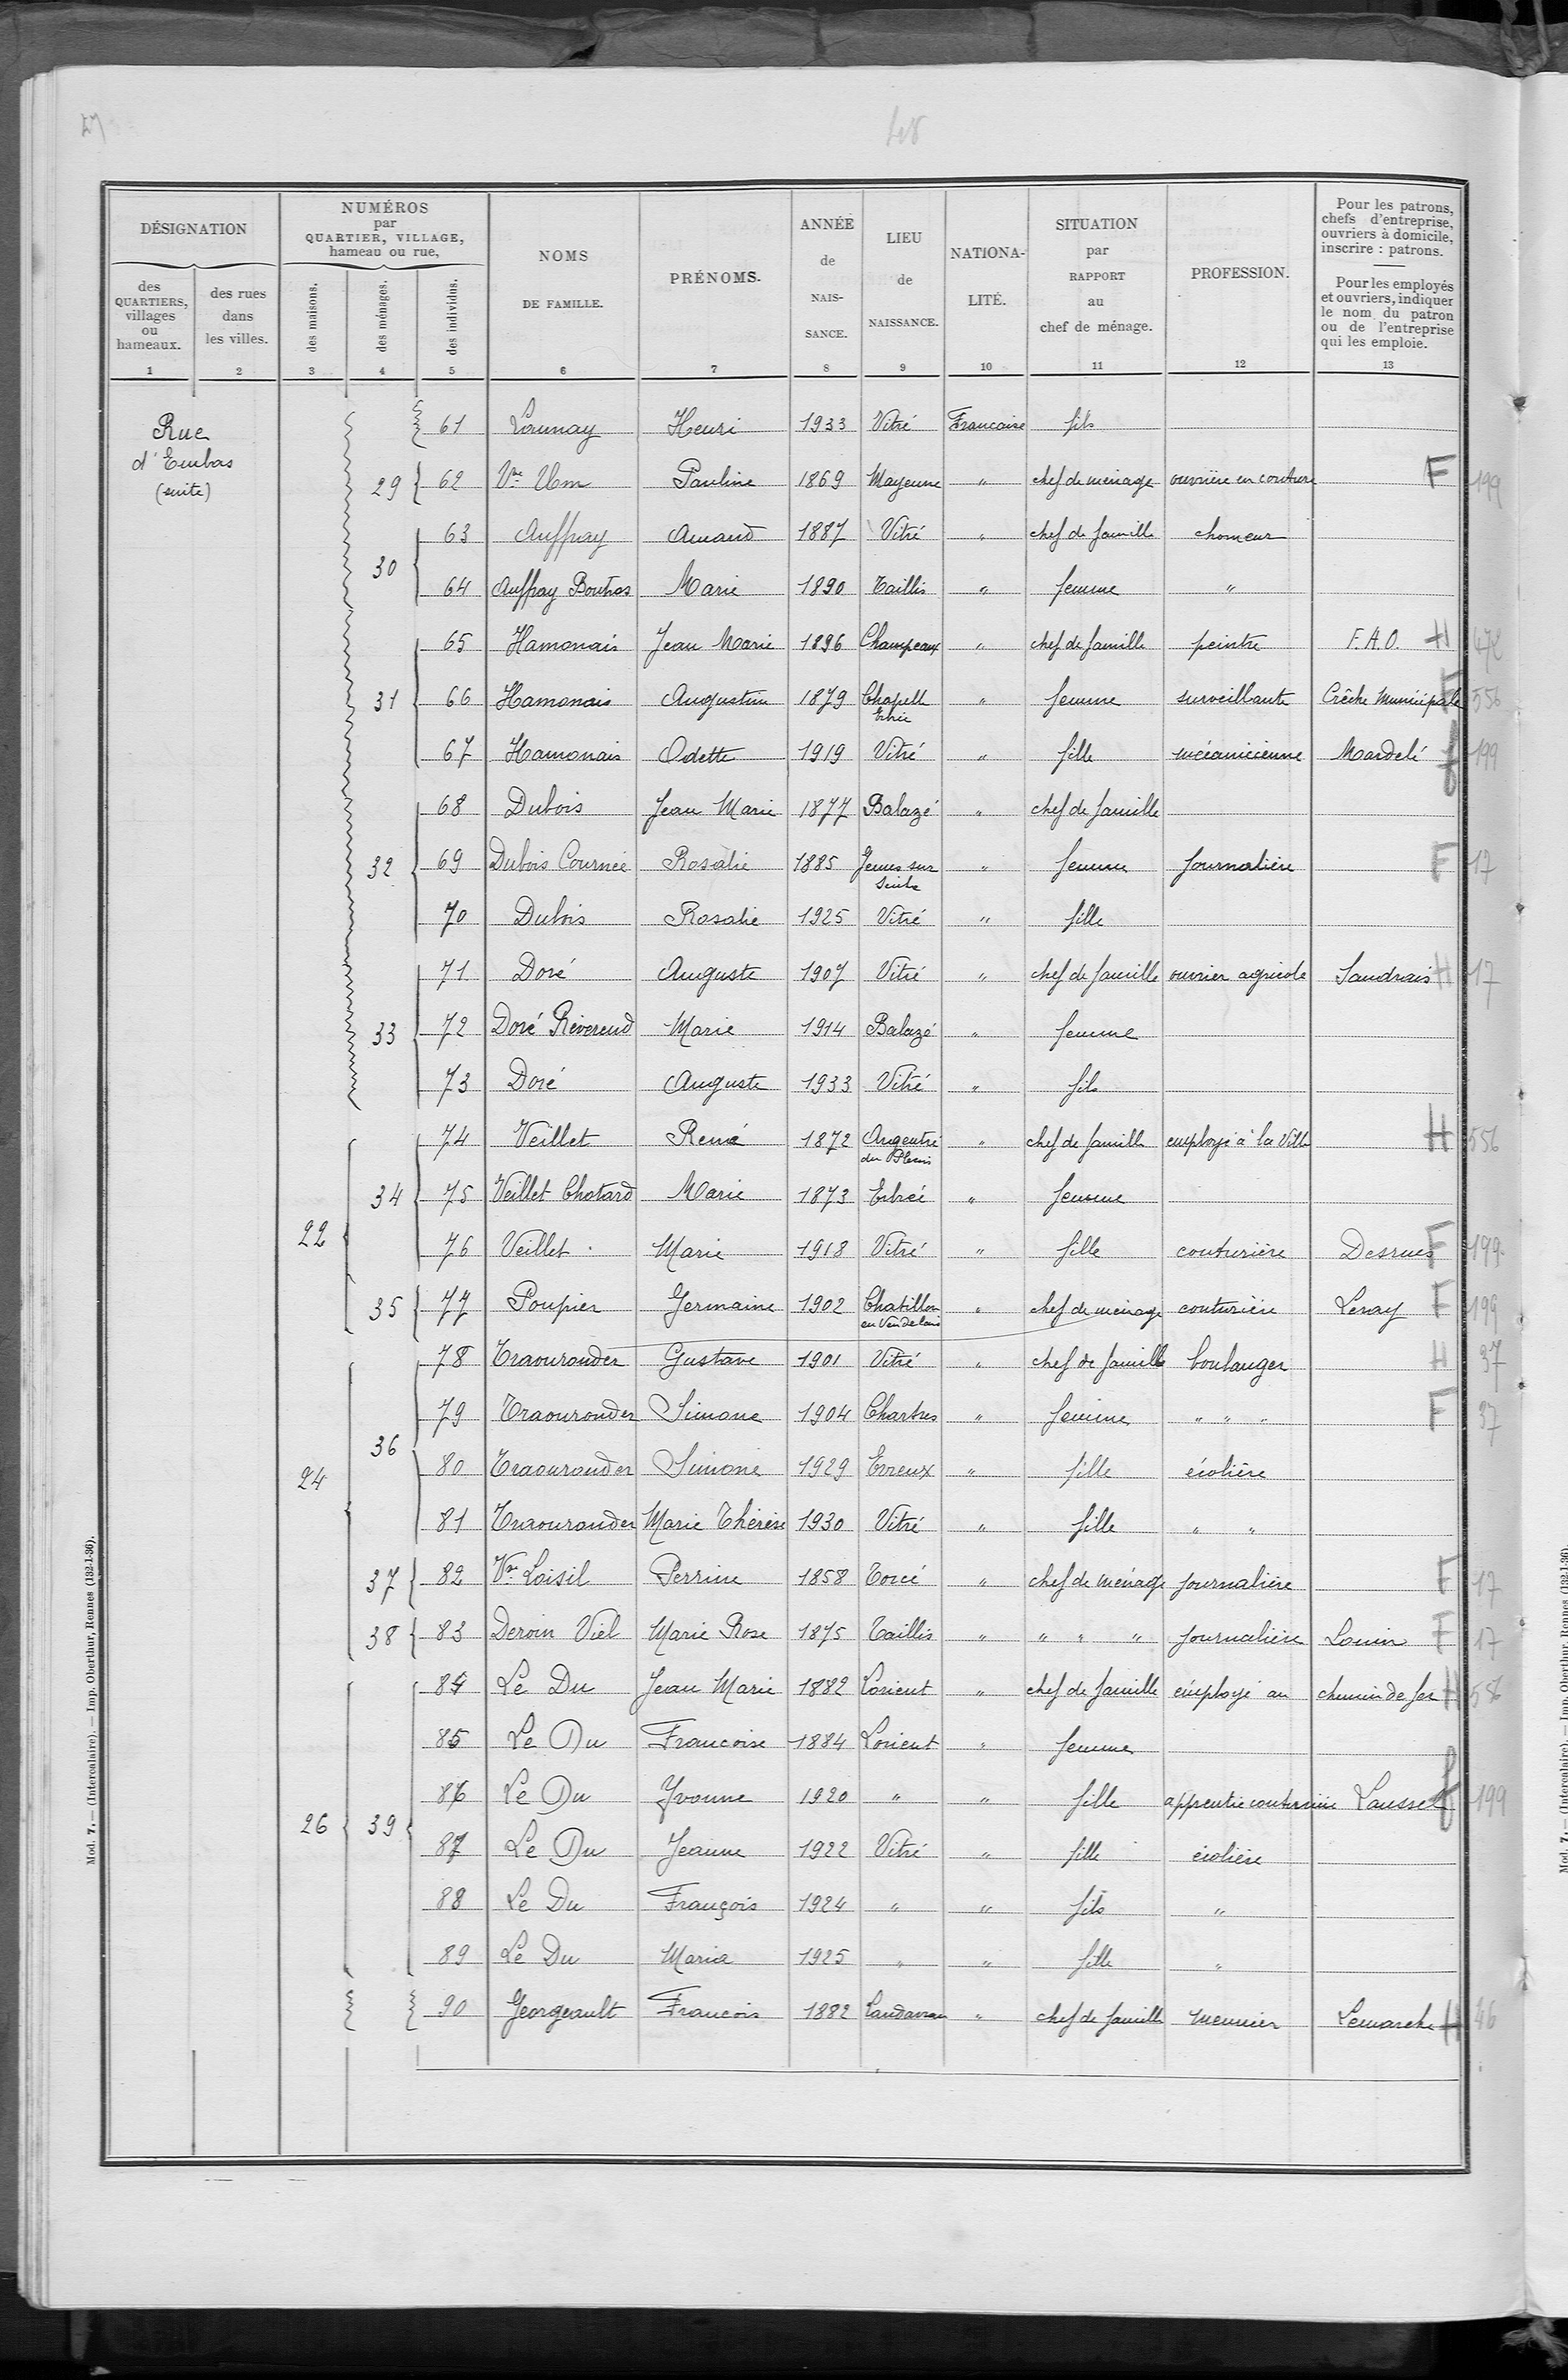 DÉSIGNATION
NUMÉROS
par
QUARTIER, VILLAGE,
hameau ou rue,
NOMS
DE FAMILLE.
PRÉNOMS.
ANNÉE
de
NAIS-
SANCE.
LIEU
de
NAISSANCE.
NATIONA-
LITÉ.
SITUATION
par
RAPPORT
au
chef de ménage.
PROFESSION.
Pour les patrons,
chefs d'entreprise,
ouvriers à domicile,
inscrire : patrons.
Pour les employés
et ouvriers, indiquer
le nom du patron
ou de l'entreprise
qui les emploie.
des
QUARTIERS,
villages
ou
hameaux.
des rues
dans
les villes.
des maisons.
des ménages.
des individus.
1 2 3 4 5 6 7 8 9 10 11 12 13
Rue
d'Embas
(suite)
61 Launay Henri 1933 Vitré Francaise fils
29 62 Vve Pauline 1869 Mayenne " chef de ménage ouvrière en couture F 199
30
63 Auffray Amand 1887 Vitré " chef de famille chomeur
64 Auffray Boutros Marie 1890 Taillis " femme "
31
65 Hamonais Jean Marie 1896 Champeaux " chef de famille peintre F.A.O. H 472
66 Hamonais Augustine 1879 Chapelle Erbrée " femme surveillante Crêche Municipale 556
67 Hamonais Odette 1919 Vitré " fille mécanicienne Mardelé f 199
32
68 Dubois Jean Marie 1877 Balazé " chef de famille
69 Dubois Cournée Rosalie 1885 Gennes sur Seiche " femme journalière F 17
70 Dubois Rosalie 1925 Vitré " fille
33
71 Doré Auguste 1907 Vitré " chef de famille ouvrier agricole Jandrais H 17
72 Doré Réverend Marie 1914 Balazé " femme
73 Doré Auguste 1933 Vitré " fils
22
34
74 Veillet René 1872 Argentré du Plessis " chef de famille employé à la Ville H 556
75 Veillet Chotard Marie 1873 Erbrée " femme
76 Veillet Marie 1918 Vitré " fille couturière Desrues F 199
35 77 Poupier Germaine 1902 Chatillon en Vendelais " chef de ménage couturière Leray F 199
24
36
78 Traouronder Gustave 1901 Vitré " chef de famille boulanger H 37
79 Traouronder Simone 1904 Chartres " femme " " " F 37
80 Traouronder Simone 1929 Evreux " fille écolière
81 Traouronder Marie Thérèse 1930 Vitré " fille " "
37 82 Vve Loisil Perrine 1858 Torcé " chef de ménage journalière F 17
38 83 Deroin Viel Marie Rose 1875 Taillis " " " " journalière Louin F 17
26
39
84 Le Du Jean Marie 1882 Lorient " chef de famille employé au chemin de fer H 556
85 Le Du Francoise 1884 Lorient " femme
86 Le Du Yvonne 1920 " " fille apprentie couturière Lausset f 199
87 Le Du Jeanne 1922 Vitré " fille écolière
88 Le Du François 1924 " " fils "
89 Le Du Maria 1925 " " fille "
90 Georgeault Francois 1882 Landavran " chef de famille meunier Lemarche H 46
Mod. 7. — (Intercalaire). — Imp. Oberthur, Rennes (132-1-36).
Mod. 7. — (Intercalaire). — Imp. Oberthur, Rennes (132-1-36).